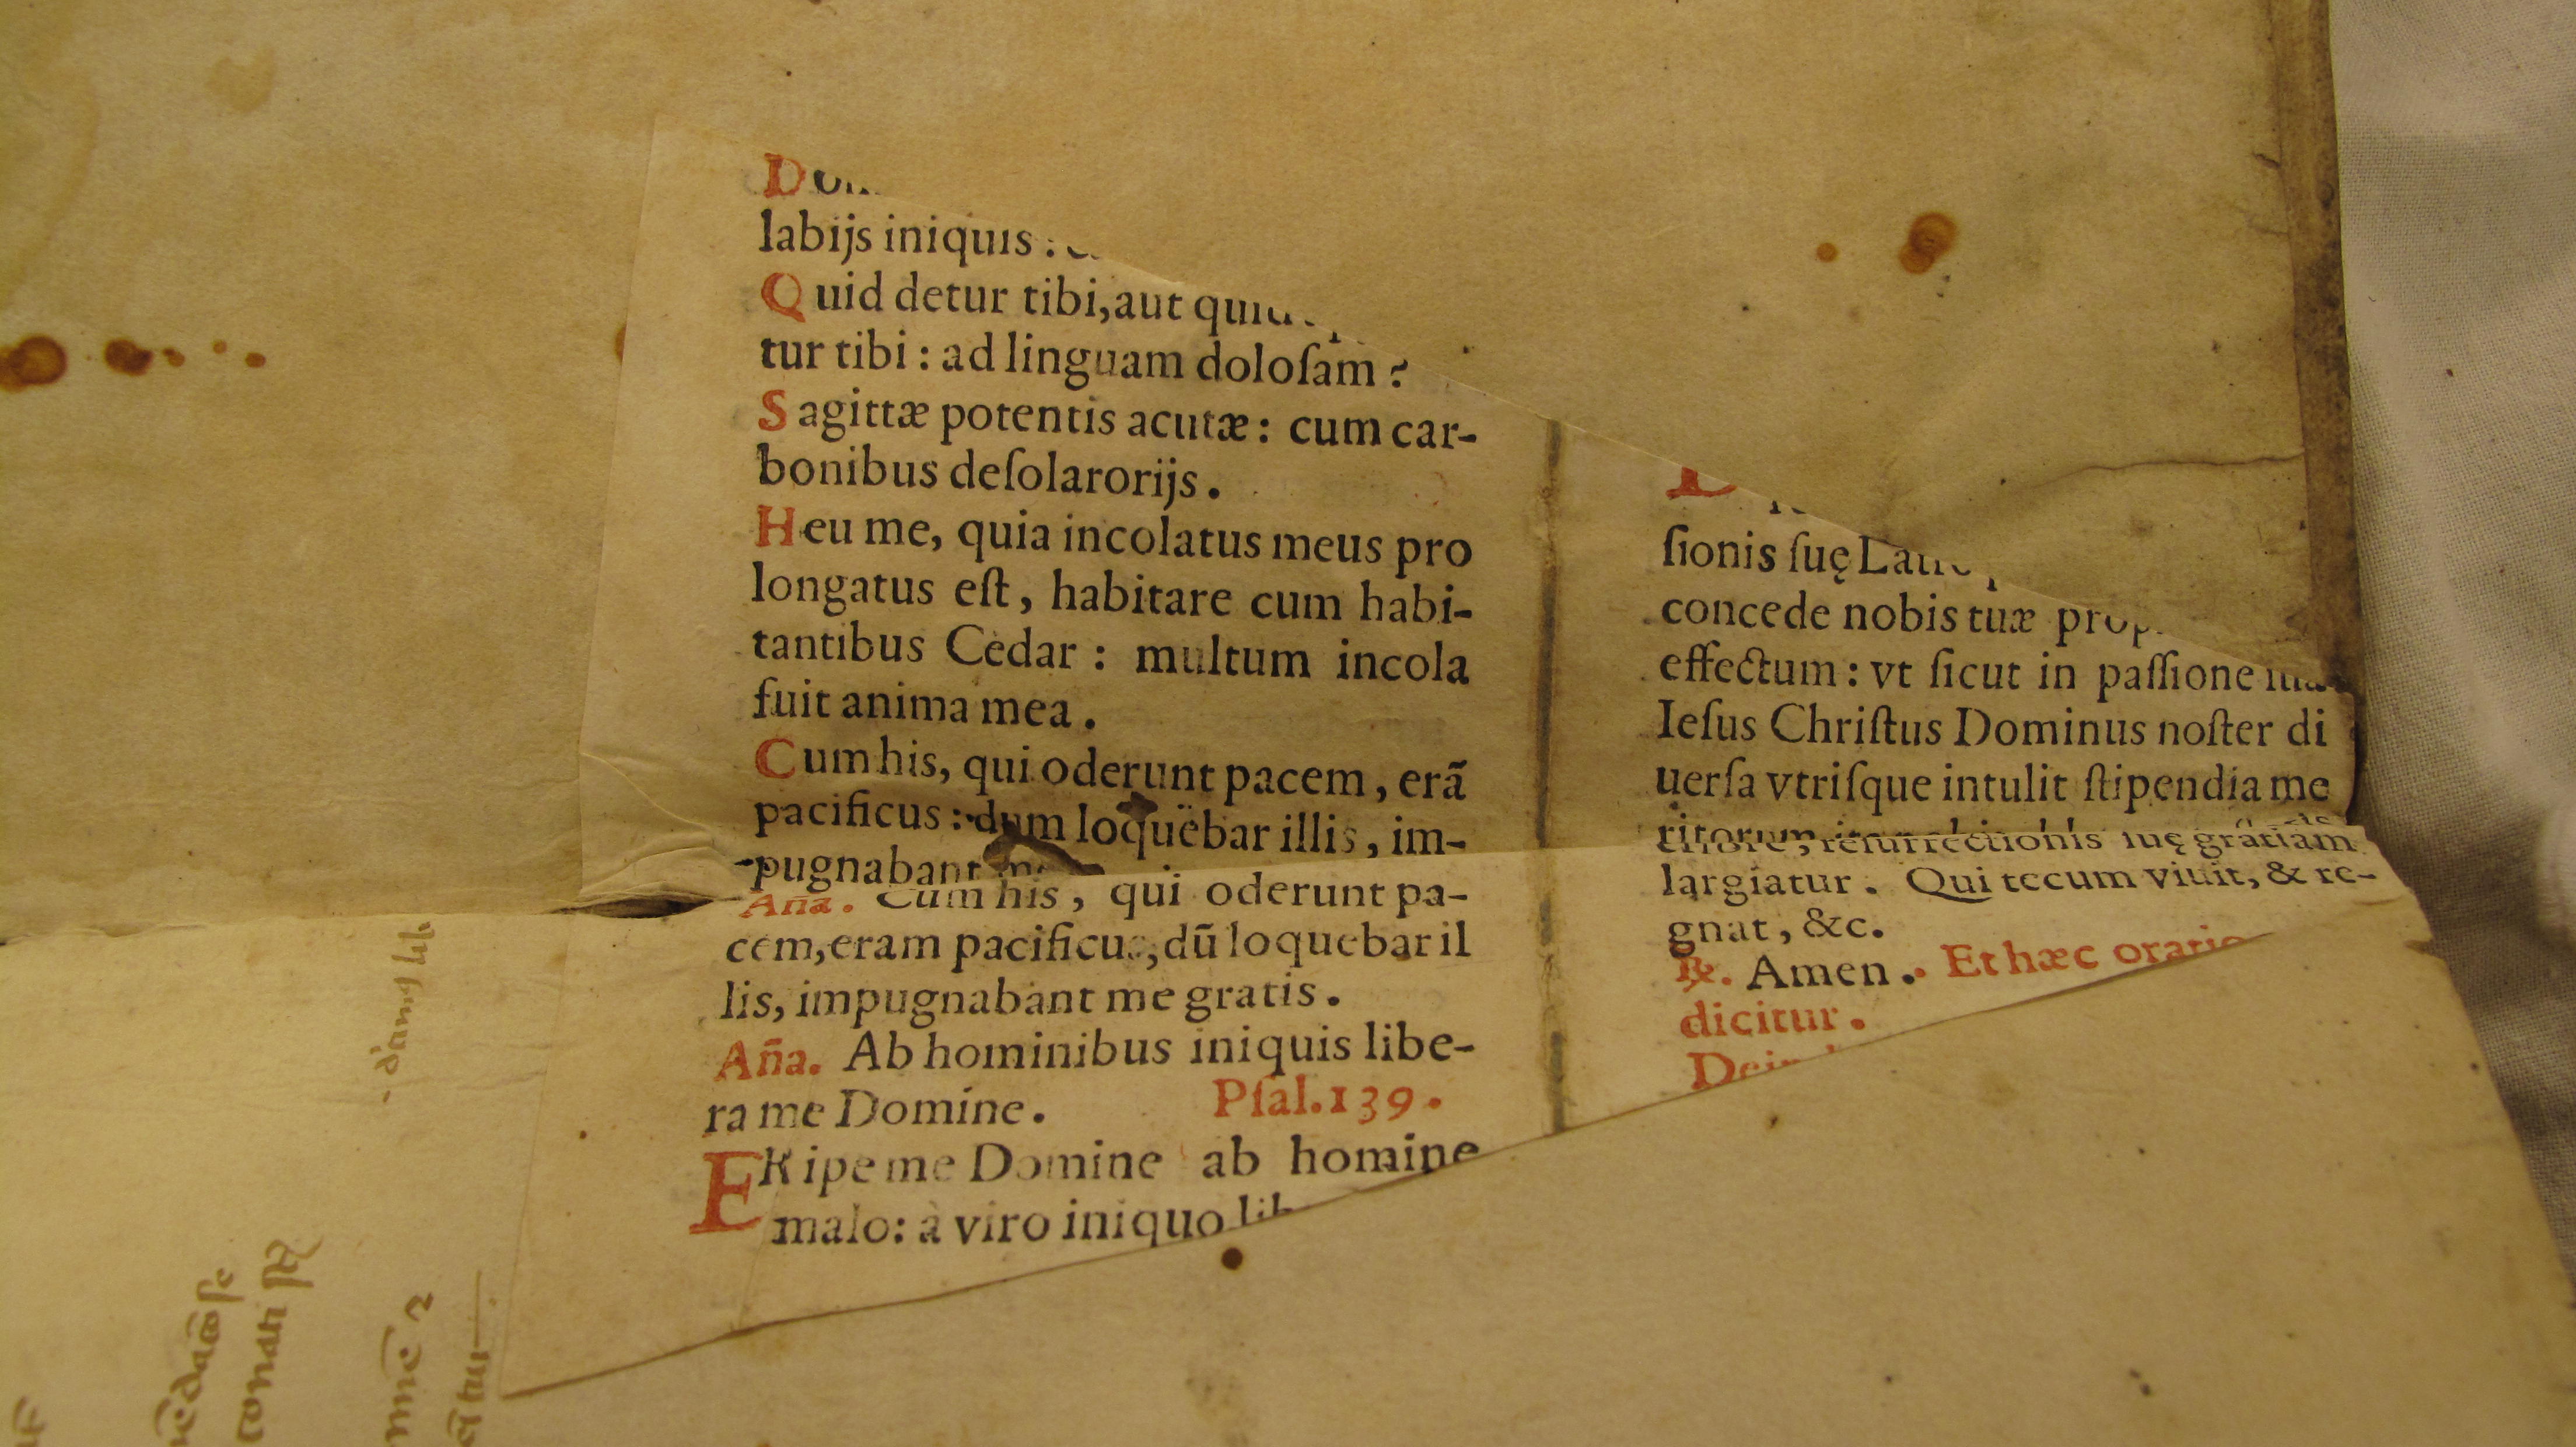 labijs iniquis :
Quid detur tibi, aut
tur tibi : ad linguam doloſam ?
Sagittæ potentis acutæ : cum car-
bonibus deſolarorijs .
Heu me, quia incolatus meus pro
longatus eſt, habitare cum habi-
tantibus Cedar : multum incola
fuit anima mea .
Cum his, qui oderunt pacem, erã
pacificus : dum loquëbar illis, im-
pugnabant
Aña. Cum his, qui oderunt pa-
cem, eram pacificus, dũ loquebar il
lis, impugnabant me gratis .
Aña. Ab hominibus iniquis libe-
ra me Domine .
Pſal. 139 .
ERipe me Domine ab homine
malo : à viro iniquo
ſionis ſuę
concede nobis tuæ
effectum : vt ſicut in paſſione
Ieſus Chriſtus Dominus noſter di
uerſa vtriſque intulit ſtipendia me
reſurrectionis ſuę gratiam
largiatur . Qui tecum viuit, & re-
gnat, &c.
℟. Amen . Et hæc oratio
dicitur .